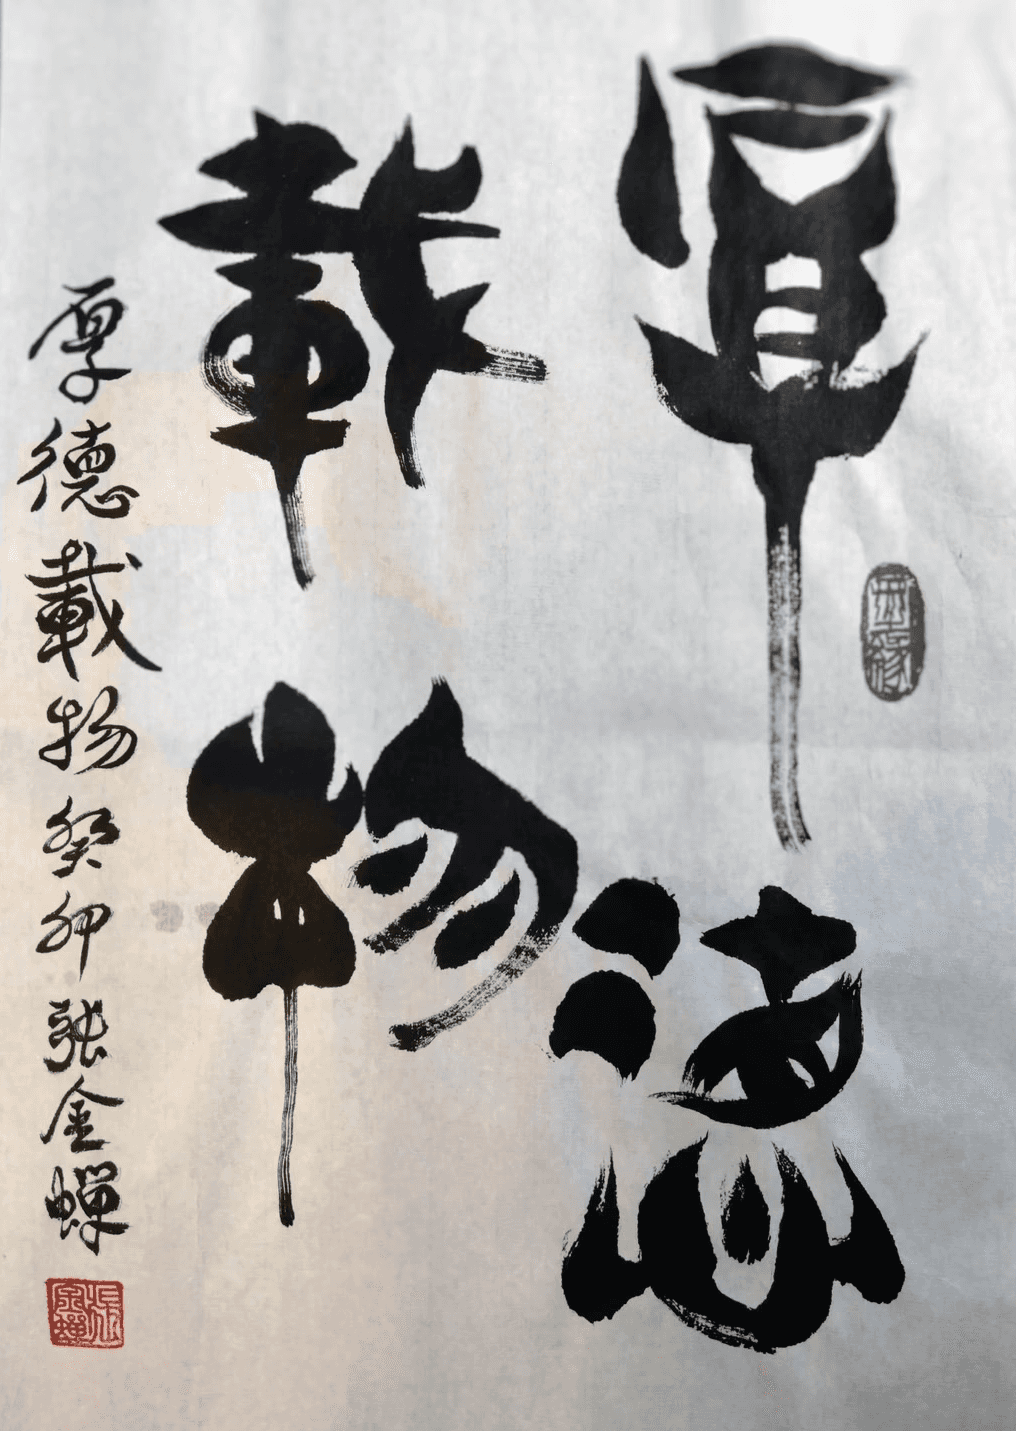 厚德
載物
厚德載物癸卯張金蟬